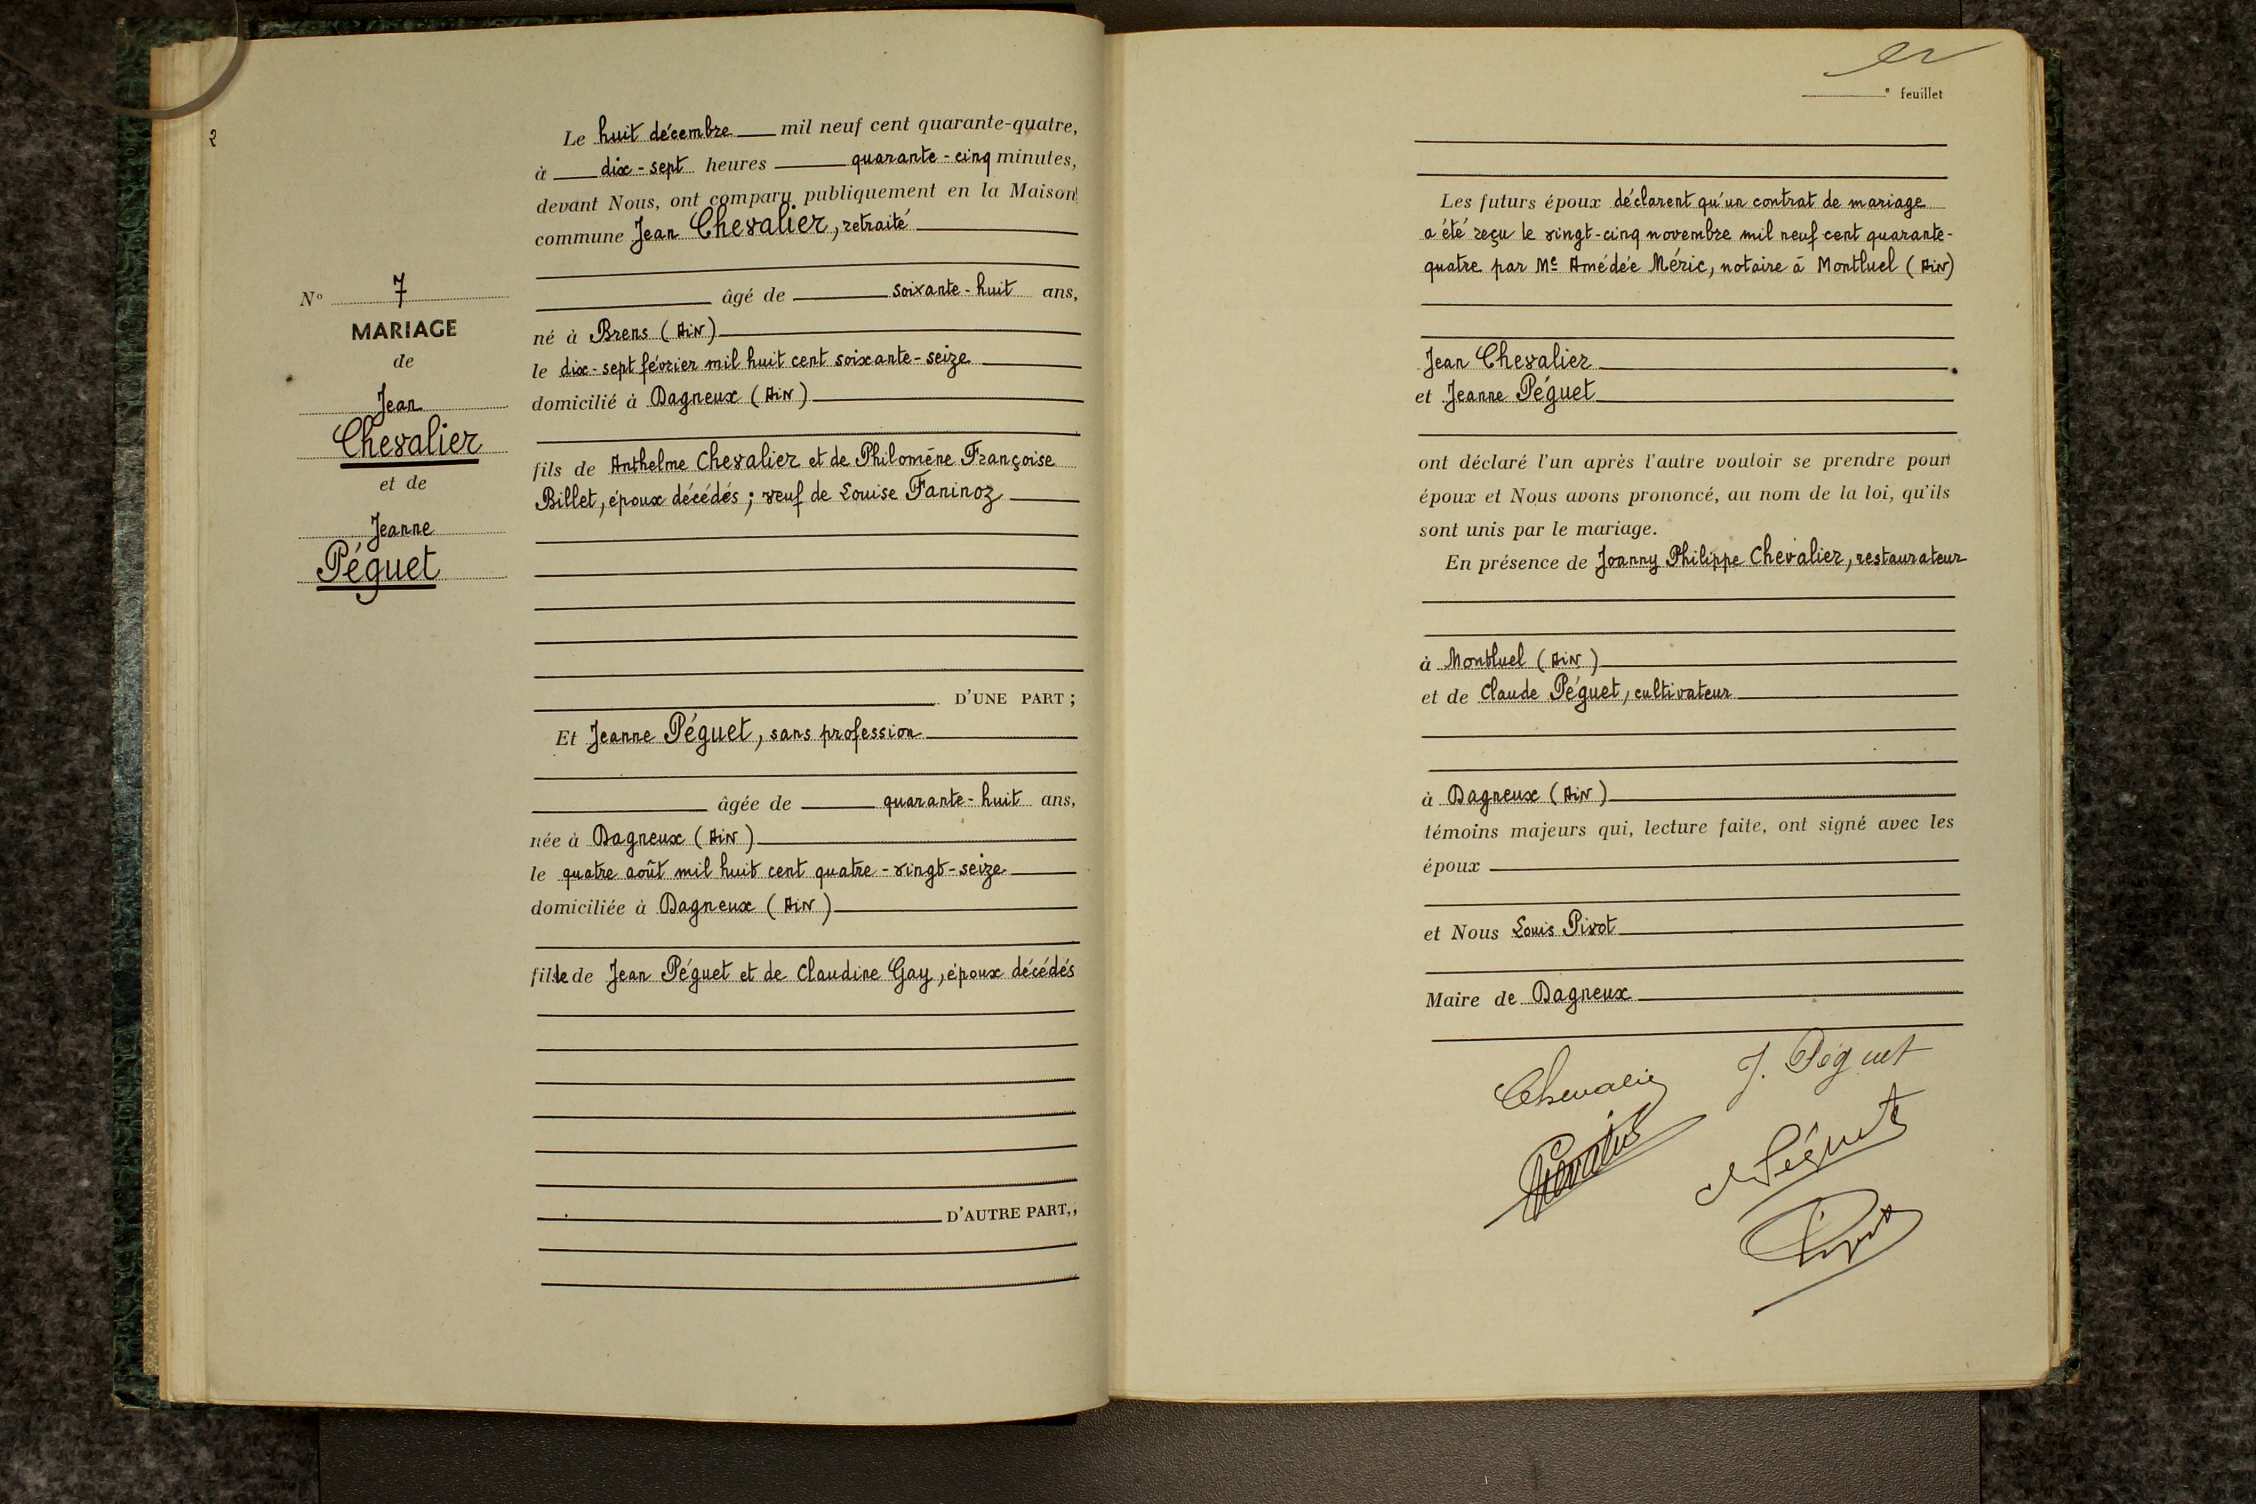 2
Le huit décembre mil neuf cent quarante-quatre,
à dix-sept heures quarante-cinq minutes,
devant Nous, ont comparu publiquement en la Maison
commune Jean Chevalier, retraité
âgé de soixante-huit ans,
né à Brens (Ain)
le dix-sept février mil huit cent soixante-seize
domicilié à Dagneux (Ain)
fils de Anthelme Chevalier et de Philomène Françoise
Billet, époux décédés ; veuf de Louise Faninoz
D'UNE PART ;
Et Jeanne Péguet, sans profession
âgée de quarante-huit ans,
née à Dagneux (Ain)
le quatre août mil huit cent quatre-vingt-seize
domiciliée à Dagneux (Ain)
fille de Jean Péguet et de Claudine Gay, époux décédés
D'AUTRE PART,,
N° 7
MARIAGE
de
Jean
Chevalier
et de
Jeanne
Péguet
° feuillet
Les futurs époux déclarent qu'un contrat de mariage
a été reçu le vingt-cinq novembre mil neuf cent quarante-
quatre par Me Amédée Méric, notaire à Montluel (Ain)
Jean Chevalier
et Jeanne Péguet
ont déclaré l'un après l'autre vouloir se prendre pour
époux et Nous avons prononcé, au nom de la loi, qu'ils
sont unis par le mariage.
En présence de Joanny Philippe Chevalier, restaurateur
à Montluel (Ain)
et de Claude Péguet, cultivateur
à Dagneux (Ain)
témoins majeurs qui, lecture faite, ont signé avec les
époux
et Nous Louis Pivot
Maire de Dagneux
Chevalier J. Péguet
Chevalier Péguet
Pivot